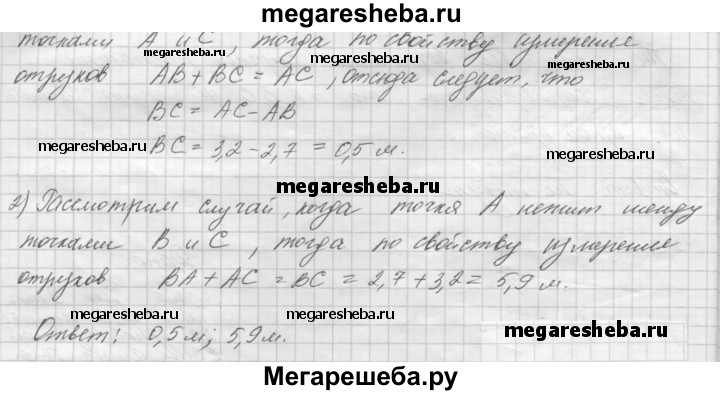 megaresheba.ru
точками A и C, тогда по свойству измерения
megaresheba.ru
отрезков AB + BC = AC, отсюда следует, что
BC = AC - AB
megaresheba.ru
megaresheba.ru
BC = 3,2 - 2,7 = 0,5 м.
megaresheba.ru
megaresheba.ru
2) Рассмотрим случай, когда точка A лежит между
точками B и C, тогда по свойству измерения
megaresheba.ru
отрезков BA + AC = BC = 2,7 + 3,2 = 5,9 м.
megaresheba.ru
megaresheba.ru
Ответ: 0,5 м; 5,9 м.
megaresheba.ru
Мегарешеба.ру